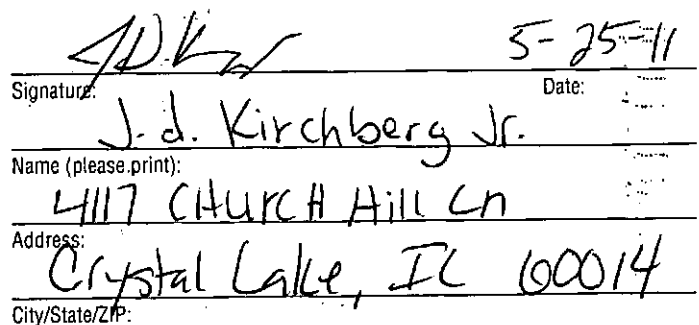 5-25-11
Signature: Date:
J. d. Kirchberg Jr.
Name (please print):
4117 CHURCH Hill Ln
Address:
Crystal Lake, IL 60014
City/State/ZIP: